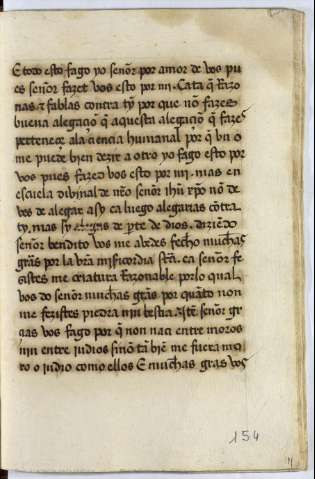 E todo esto fago yo señor por amor de vos pu
es señor fazet vos esto por mi. Cata q̃ Razo
nas & fablas contra ty por que nõ fazes
buena alegaciõ q̃ aquesta alegaciõ q̃ fazes
pertenesçe ala çiencia humanal por q̃ vn o
me puede bien dezir a otro yo fago esto por
vos pues fazed vos esto por mi. mas en
escuela diuinal de nr̃o señor ihũ xp̃o nõ de
ves de alegar asy ca luego alegarias cõtra
ty. mas sy alegas de p̃te de dios. diziẽdo
señor bendito vos me auedes fecho muchas
gr̃as por la vr̃a misericordia ca señor fe
zistes me criatura Razonable por lo qual
vos do señor muchas gr̃as por quãto non
me fezistes piedra nin bestia señor gr̃
aias vos fago por q̃ non naçi entre moros
nin entre iudios sinõ tã biẽ me fuera mo
ro o iudio como ellos E muchas gr̃as vos
154